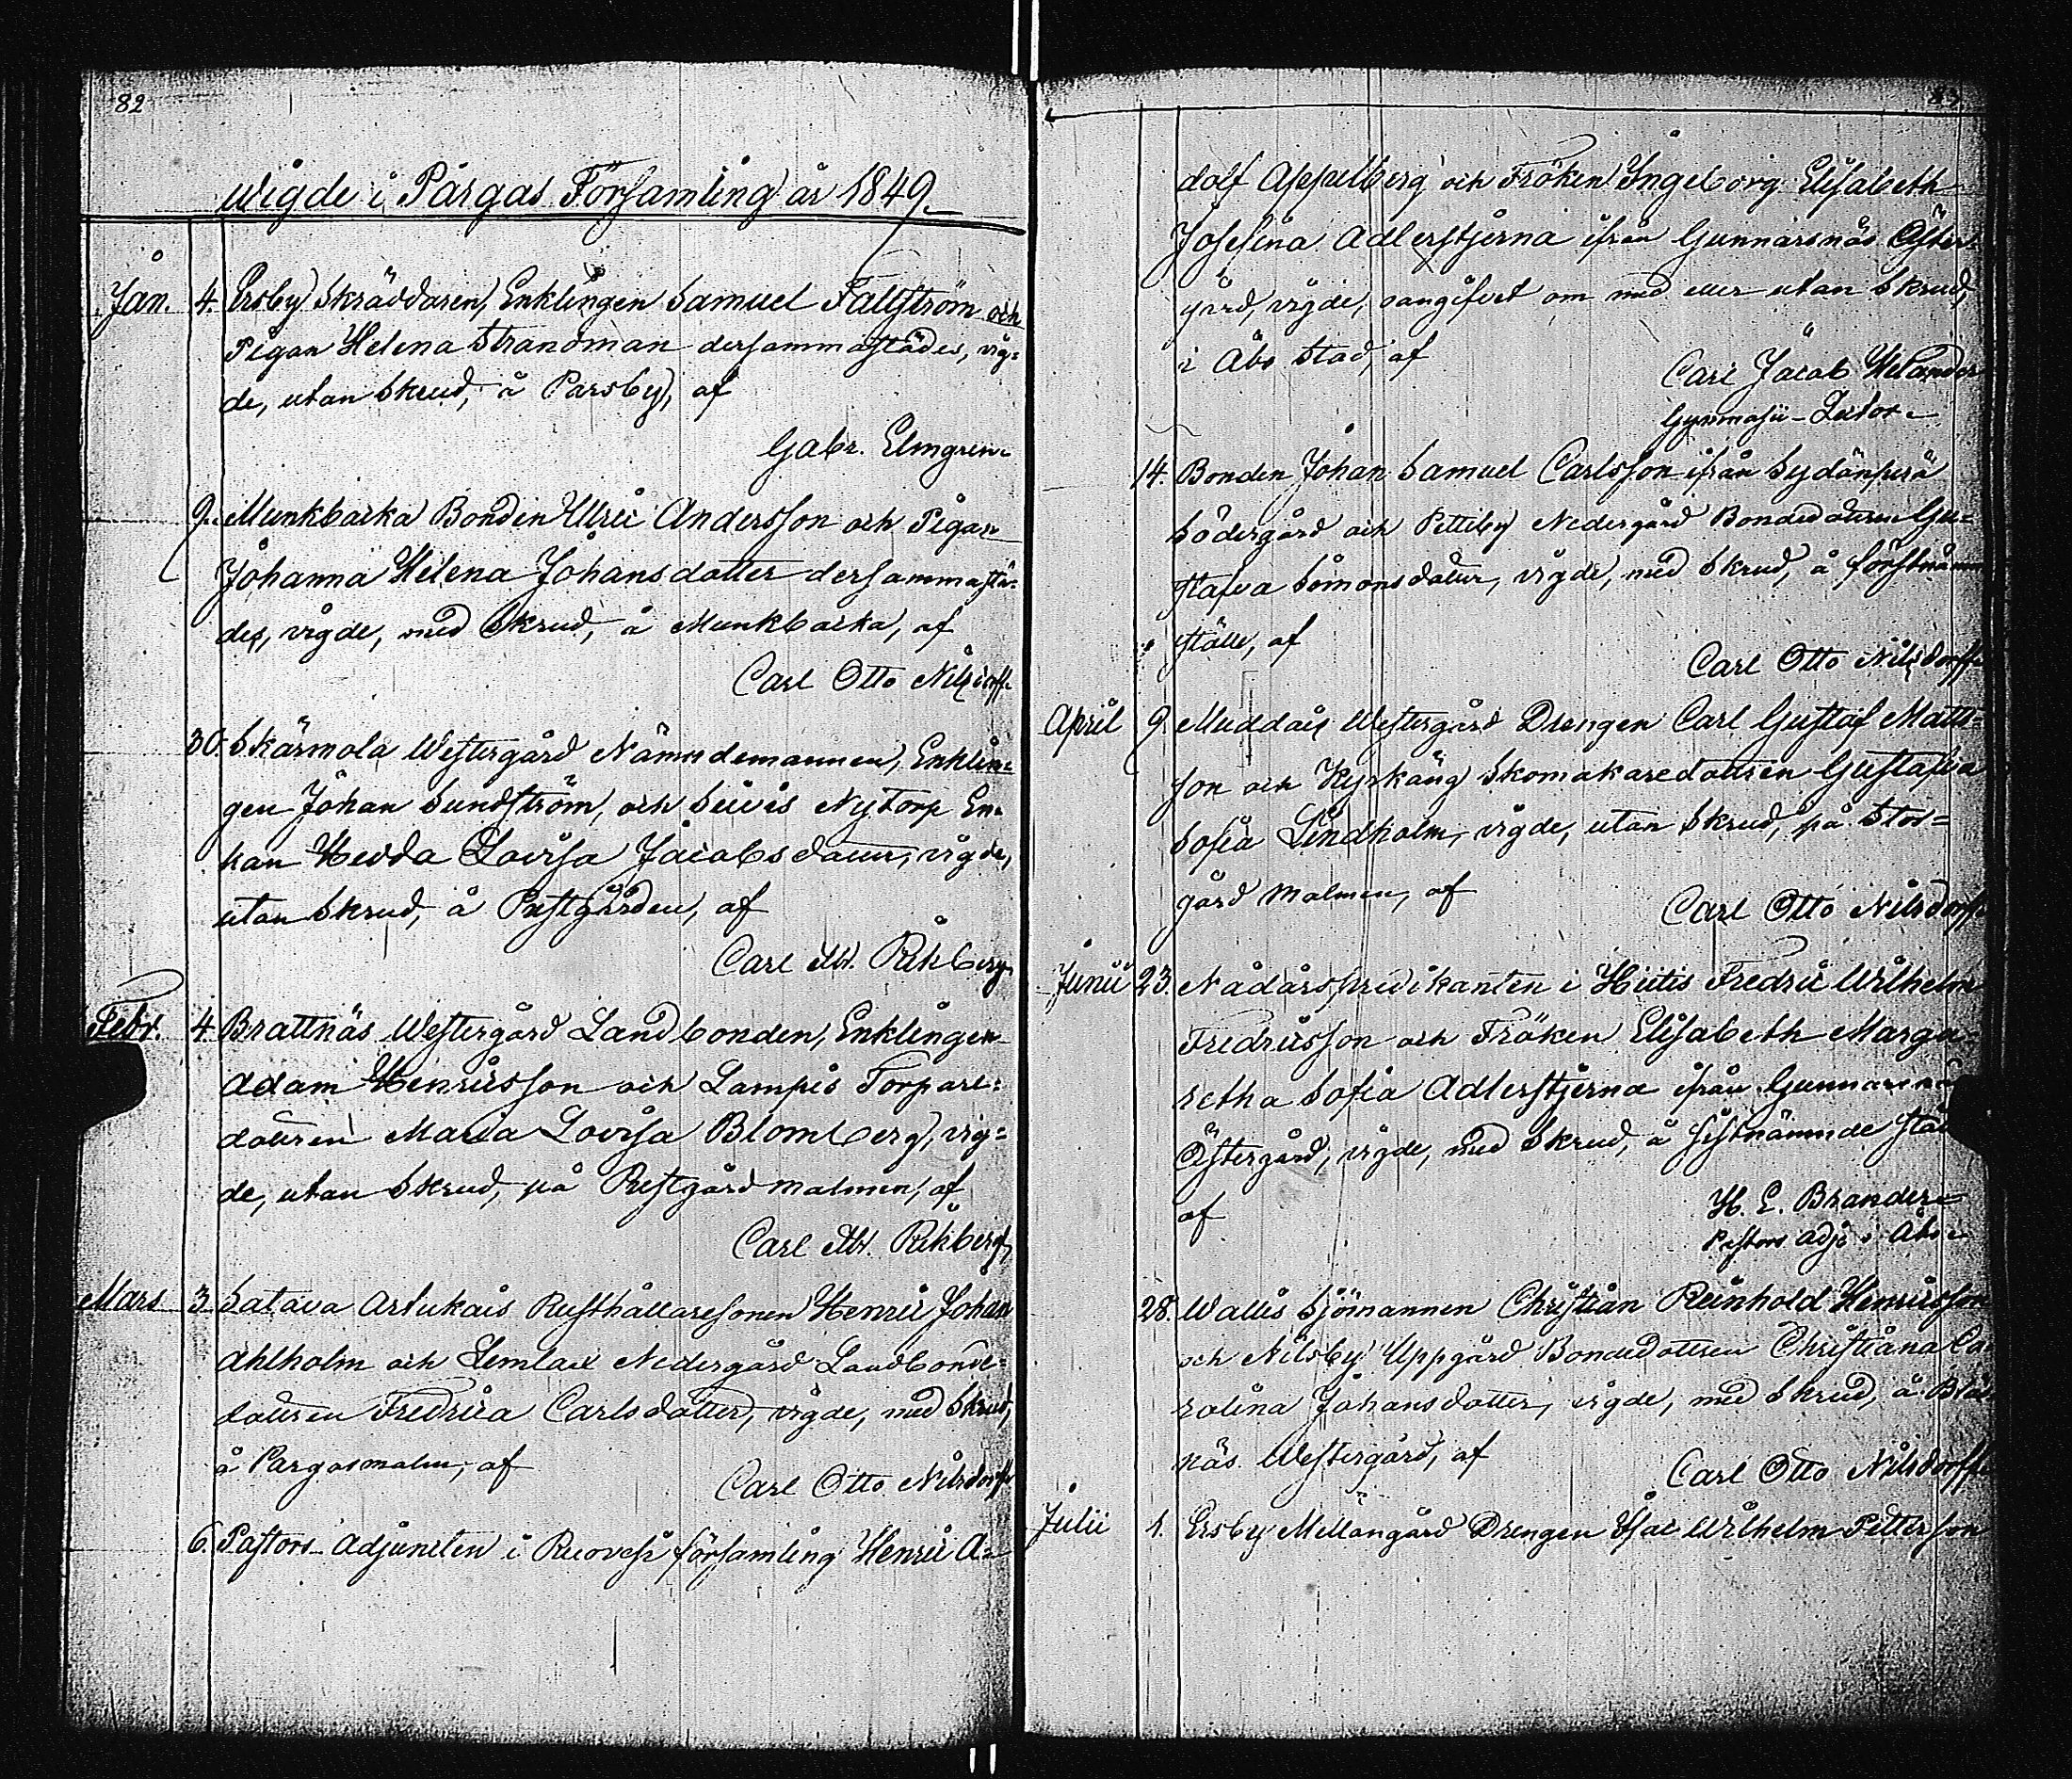 82
Wigde i Pargas Församling år 1849.
Jan. 4. Ersby Skräddaren, Enklingen Samuel Fallström och
Pigan Helena Strandman dersammastädes, vig=
de, utan Skrud, å Parsby, af
Gabr. Elmgren.
9. Munkbacka Bonden Ulric Andersson och Pigan
Johanna Helena Johansdotter dersammastä=
des, vigde, med Skrud, å Munkbacka, af
Carl Otto Nilsdorff
30. Skärmola Westergård Nämndemannen, Enklin=
gen Johan Sundström, och Nytorp En=
kan Hedda Lovisa Jacobsdotter, vigde,
utan Skrud, å Prestgården, af
Carl Rikberg
Febr. 4. Brattnäs Westergård Landbonden, Enklingen
Adam Henricsson och Lampis Torpare=
dottren Maria Lovisa Blomberg, vig=
de, utan Skrud, på Prestgård malmen, af
Carl Rikberg
Mars 3. Satava Artukais Rusthållaresonen Henric Johan
Ahlholm och Lemlax Nedergård Landbonde=
dottren Fredrica Carlsdotter, vigde, med Skrud,
å Pargasmalm, af
Carl Otto Nilsdorff
6. Pastors Adjuncten i församling Henric A=
83
dolf Appelberg och Fröken Ingeborg Elisabeth
Josefina Adlerstjerna ifrån Gunnarsnäs Öster=
gård, vigde, oangifvet om med eller utan Skrud,
i Åbo Stad, af
Carl Jacob Welander
Gymnasii-Lector
14. Bonden Johan Samuel Carlsson ifrån Sydänperä
Södergård och Pettiby Nedergård Bondedottren Gu=
stafva Simonsdotter, vigde, med Skrud, å förstnämn
ställe, af
Carl Otto Nilsdorff
April 9. Muddais Westergård Drengen Carl Gustaf Matts=
son och Kyrkäng Skomakaredottren Gustafva
Sofia Lindholm, vigde, utan Skrud, på Stor=
gård malmen, af
Carl Otto Nilsdorff
Junii 23. Nådårspredikanten i Hiitis Fredric Wilhelm
Fredricsson och Fröken Elisabeth Marga=
retha Sofia Adlerstjerna ifrån Gunnarsnäs
Östergård, vigde, med Skrud, å sistnämnde stä
af
H. E. Brander
Pastors Adj: i Åbo
28. Wallis Sjömannen Christian Reinhold Henricsson
och Nilsby Uppgård Bondedottren Christiana Ca
rolina Johansdotter, vigde, med Skrud, å
näs Westergård, af
Carl Otto Nilsdorff
Julii 1. Ersby Mellangård Drengen Isac Wilhelm Petterson